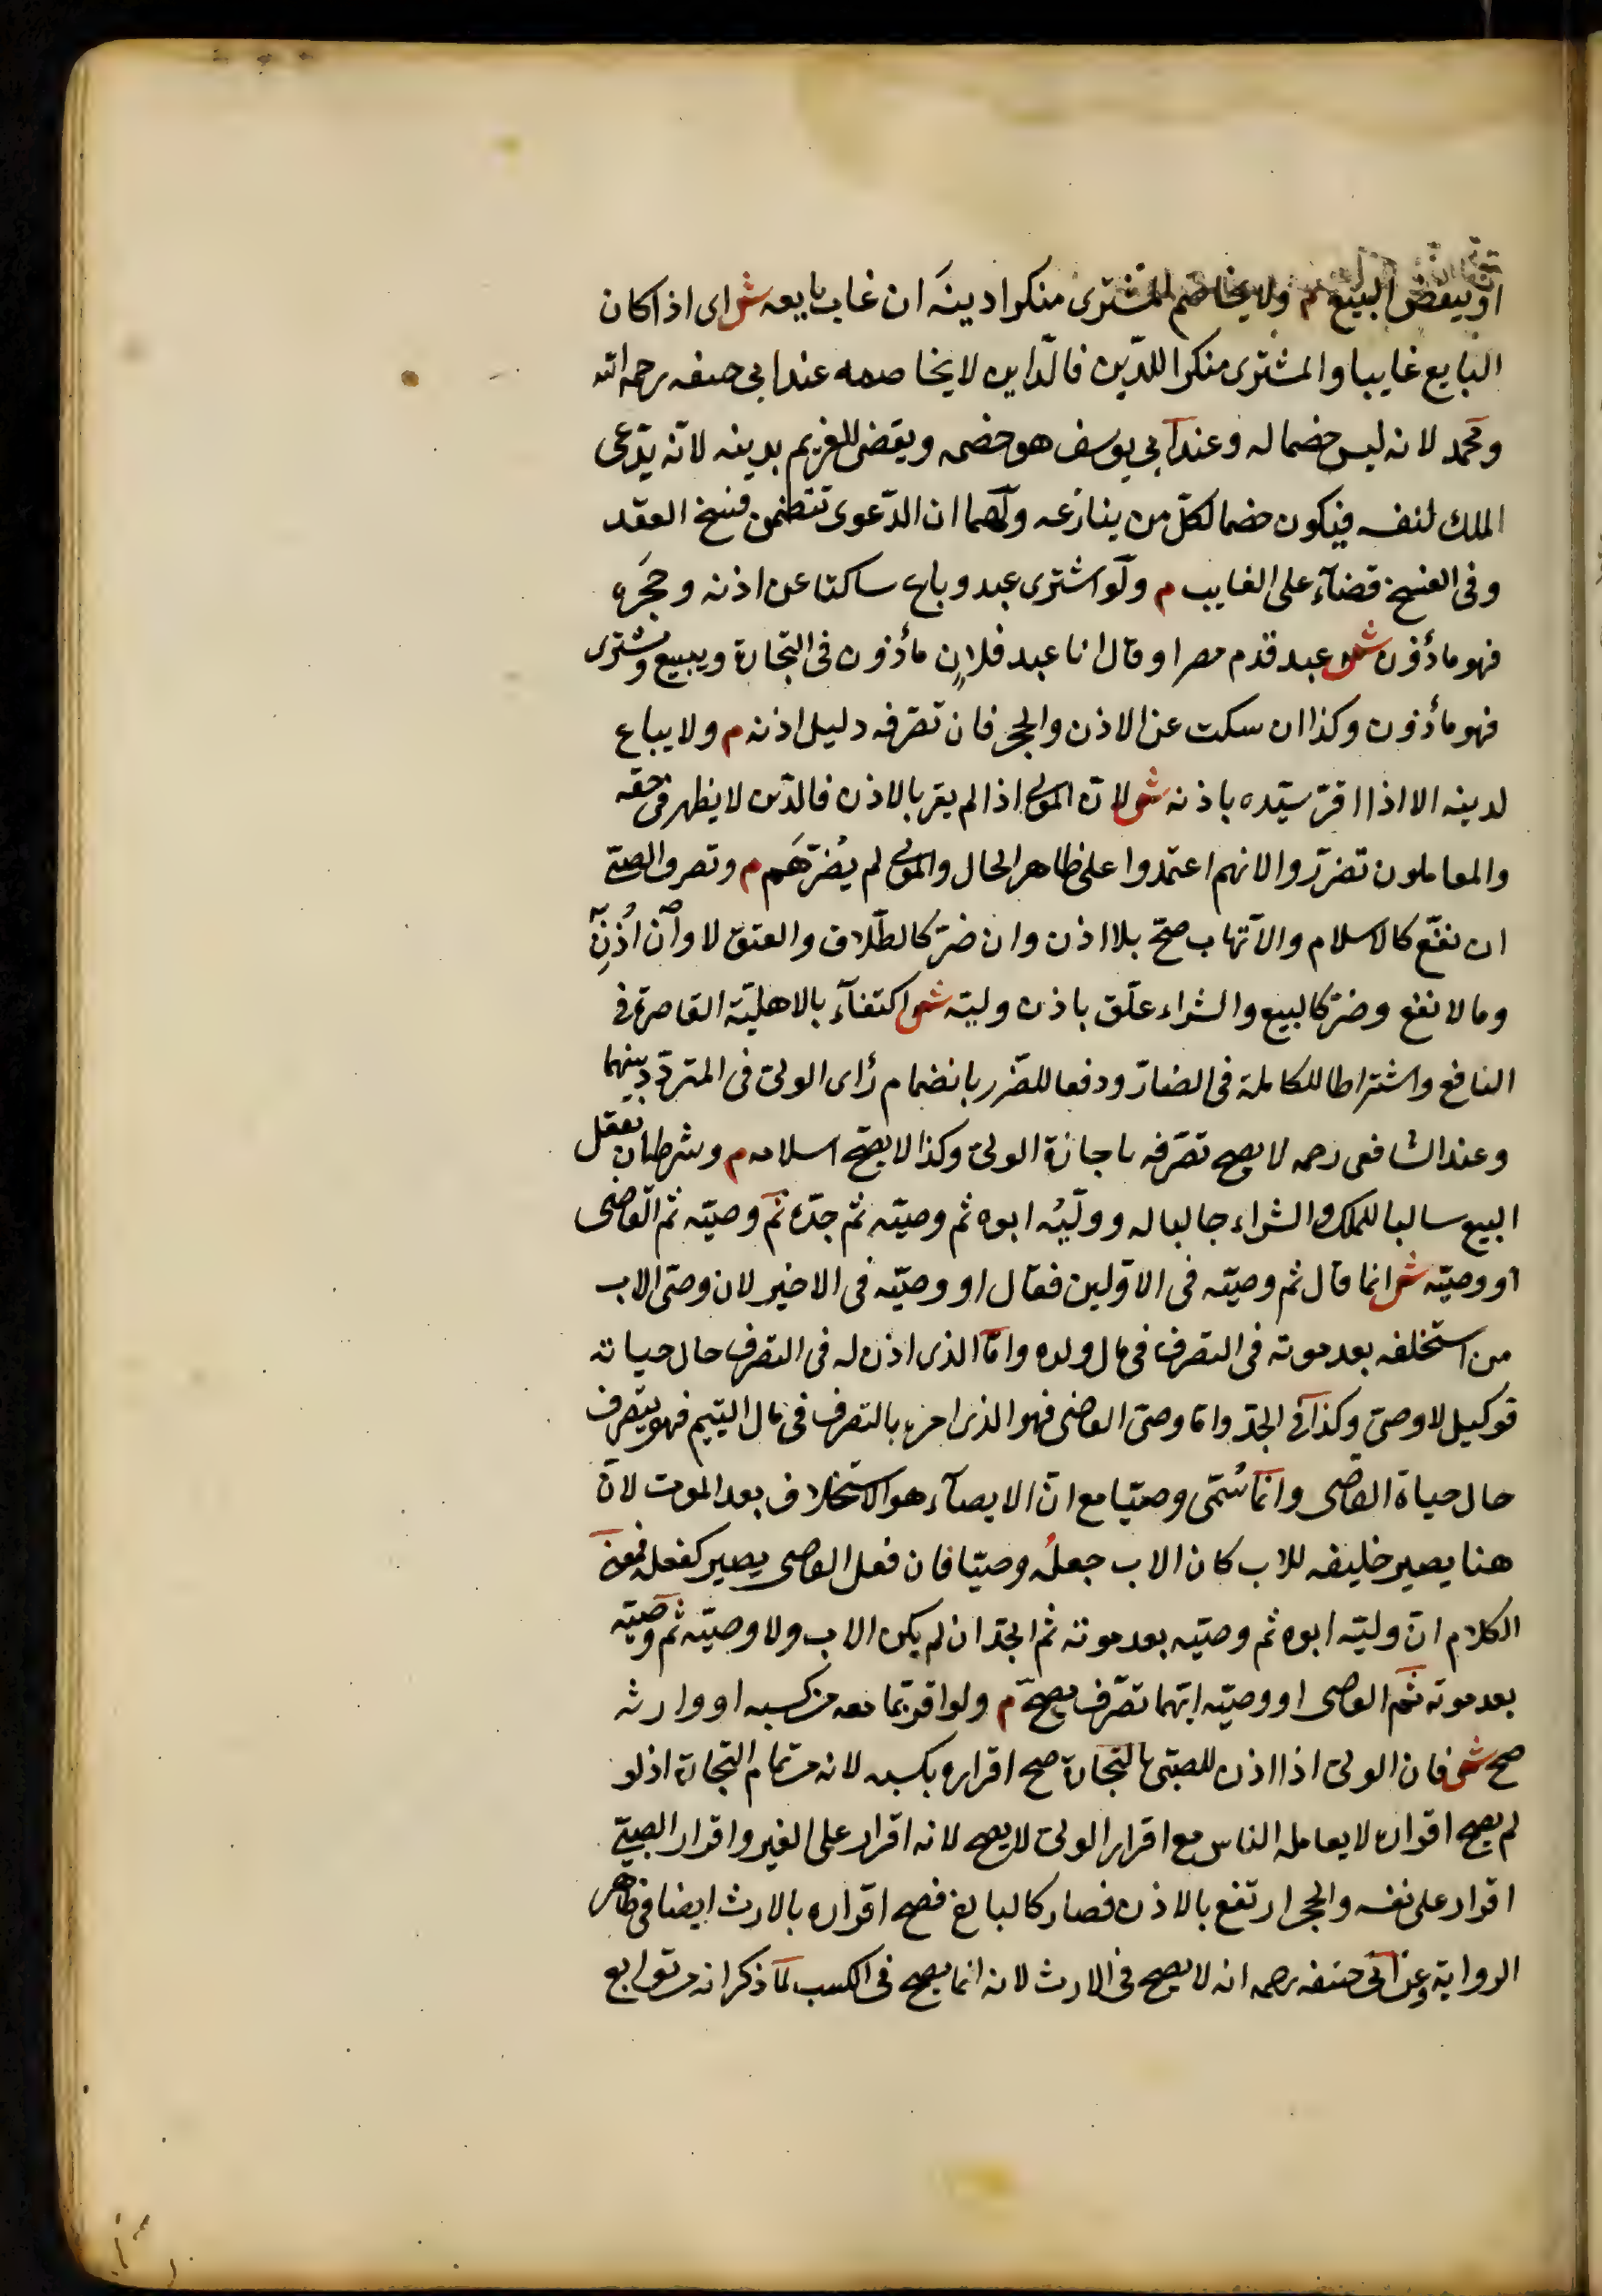 او ينقض البيع م ولا يخاصم المشترى منكرا دينَه ان غاب بايعه ش اى اذا كان
البايع غايبا والمشترى منكرا للدّين فالدّاين لا يخاصمه عند ابى حنيفه رحمه الله
ومحمد لانه ليس خصما له وعند ابى يوسف هو خصمه ويقضى للغريم بدينه لانّه يدّعى
الملك لنفسه فيكون خصما لكلّ من ينازعه ولهما ان الدّعوى تتضمن فسخ العقد
وفى الفسخ قضآء على الغايب م ولو اشترى عبد وباع ساكتا عن اذنه وحَجَره
فهو مأذون ش عبد قدم مصرا وقال انا عبد فلانٍ مأذون فى التجارة ويبيع ويشترى
فهو مأذون وكذا ان سكت عن الاذن والحجر فان تصّرفه دليل اذنه م ولا يباع
لدينه الا اذا اقرّ سيّده باذنه ش لانّ المولى اذا لم يقر بالاذن فالدّين لا يظهر فى حقه
والمعاملون تضرّروا لانهم اعتمدوا على ظاهر الحال والمولى لم يُضرّهَم م وتصرف الصبّى
ان نفَع كالاسلام والاتّهاب صحّ بلا اذن وان ضرّ كالطّلاق والعتق لا وان اُذِنَ به
وما لا نفع وضرّ كالبيع والشراء علّق باذن وليّه ش اكتفآء بالاهليّة القاصرة فى
النافع واشتراطا للكاملة فى الضارّ ودفعا للضّرر بانضمام رأى الولىّ فى المتردّد بينهما
وعند الشافعى رحمه لا يصح تصّرفه باجازة الولىّ وكذا لا يصحّ اسلامه م وشرطه ان يعقل
البيع سالبا للملك والشراء جالبا له ووليّه ابوه ثم وصيّه ثمّ جدّه ثمّ وصيّه ثم القاضى
او وصيّه ش انما قال ثم وصيّه فى الاوّلين فقال او وصيّه فى الاخير لان وصىّ الاب
من استخلفه بعد موته فى التصرف فى مال ولده وامّا الذى اذن له فى التصرف حال حياته
فوكيل لا وصىّ وكذا فى الجدّ واما وصىّ القاضى فهو الذى امره بالتصرف فى مال اليتيم فهو يتصرف
حال حياة القاضى وانّما سُمّى وصيّا مع انّ الايصآء هو الاستخلاف بعد الموت لانّ
هنا يصير خليفه للاب كان الاب جعلُه وصيّا فان فعل القاضى يصير كفعله فمعنى
الكلام انّ وليّه ابوه ثم وصيّه بعد موته ثم الجدّ ان لم يكن الاب ولا وصيّه ثم وصيّه
بعد موته ثم القاضى او وصيّه ايّهما تصّرف يصحّ م ولو اقر بما معه من كسبه او وارثه
صح ش فان الولىّ اذا اذن للصبّى بالتجارة صح اقراره بكسبه لانه من تمام التجارة اذ لو
لم يصح اقراره لا يعامله الناس مع اقرار الولىّ لا يصح لانه اقرار على الغير واقرار الصبىّ
اقرار على نفسه والحجر ارتفع بالاذن فصار كالبالغ فصح اقراره بالارث ايضا فى ظاهر
الرواية وعن ابى حنيفه رحمه انه لا يصح فى الارث لانه انما يصح فى الكسب لما ذكر انه من توابع